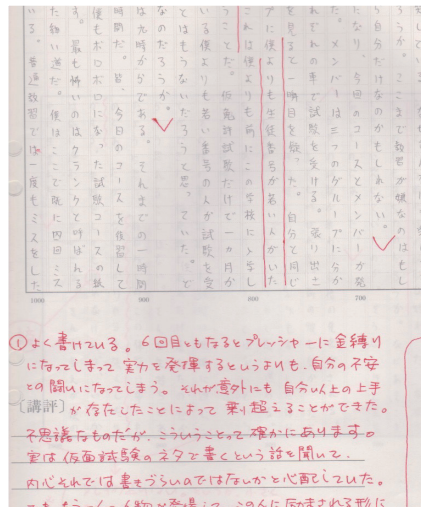 ろうか。ここまで教習が嫌なのはもし
ら自分だけなのかもしれない。
になり、今回のコースとメンバーが発
た。メンバーは三つのグループに分か
れぞれの車で試験を受ける。張り出さ
を見ると一瞬目を疑った。自分と同じ
プに僕よりも生徒番号が若い人がいた
これは僕よりも前にこの学校に入学し
うことだ。仮免許試験だけで一ヵ月が
いる僕よりも若い番号の人が試験を受
とはもうないだろうと思っていた。ど
なのだろうか。
は九時からである。それまでの一時間
時間だ。皆、今日のコースを復習して
僕もボロボロになった試験コースの紙
す。最も怖いのはクランクと呼ばれる
た細い道だ。僕はここで既に四回ミス
る。普通教習では一度もミスをした
1000 900 800 700
①よく書けている。6回目ともなるとプレッシャーに金縛り
になってしまって実力を発揮するというよりも、自分の不安
との闘いになってしまう。それが意外にも自分以上の上手
〔講評〕が存在したことによって乗り超えることができた。
不思議なものだが、こういうことって確かにあります。
実は仮面試験のネタで書くという話を聞いて、
内心それでは書きづらいのではないかと心配していた。